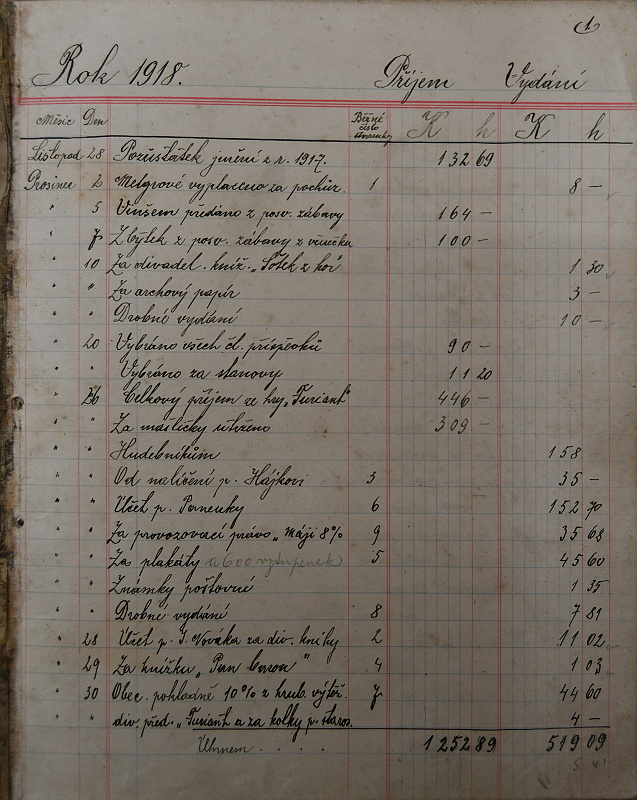 1
Rok 1918. Příjem Vydání
Měsíc Den Běžné číslo K h K h
Listopad 28 Pozůstatek jmění z r. 1917. 132 69
Prosinec 2 vyplaceno za pochůz. 1 8 —
" 5 předáno z posv. zábavy 164 —
" 7 Zbytek z posv. zábavy z věnečku 100 —
" 10 Za divadel. kniž. „Šotek z hor" 1 30
" " Za archový papír 3 —
" " Drobné vydání 10 —
" 20 Vybráno všech čl. příspěvků 90 —
" " Vybráno za stanovy 11 20
" 26 Celkový příjem ze hry „Furiant" 446 —
" " Za mašličky utrženo 309 —
" " Hudebníkům 158
" " Od nalíčení p. Hájkovi 3 35 —
" " Účet p. Panenky 6 152 70
" " Za provozovací právo „Máji 8% 9 35 68
" " Za plakáty a 600 vstupenek 5 45 60
" " Známky poštovní 1 35
" " Drobné vydání 8 7 81
" 28 Účet p. J. Nováka za div. knihy 2 11 02
" 29 Za knížku „Pan " 4 1 03
" 30 Obec. pokladně 10% z hrub. výtěž. 7 44 60
" " div. před. „Furiant a za kolky p. staros. 4 —
Úhrnem . . . . 1252 89 519 09